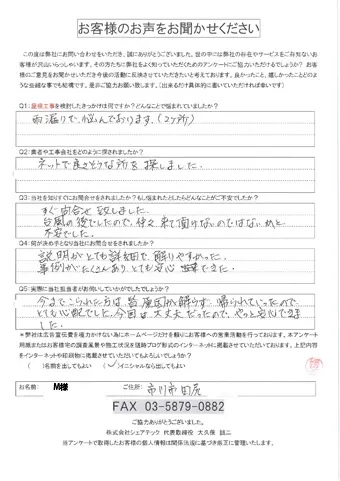 お客様のお声をお聞かせください
この度は弊社にお問い合わせをいただき、誠にありがとうございました。世の中には弊社の存在やサービスをご存知ないお
客様が沢山いらっしゃいます。その方たちに弊社をよく知っていただくためのアンケートにご協力いただけるでしょうか？お
客様のご意見をお聞かせいただき今後の活動に反映させていただきたいと考えております。良かったこと、嬉しかったことどのよ
うな些細な事でも結構です、是非ご協力お願い致します。（出来るだけ具体的に書いていただければ幸いです）
Q1:屋根工事を検討したきっかけは何ですか？どんなことで悩まれていましたか？
雨漏りで、悩んでおります。(2ヶ所)
Q2:業者や工事会社をどのように探されましたか？
ネットで良さそうな所を探しました。
Q3:当社を知りすぐにお問合せをされましたか？もし悩まれたとしたらどんなことがご不安でしたか？
すぐ問合せ致しました。
台風の後でしたので、仲々来て頂けないのではないかと
不安でした。
Q4:何が決め手となり当社にお問合せをされましたか？
説明がとても詳細で、解りやすかった。
事例がたくさんあり、とても安心出来ました。
Q5:実際に当社担当者がお伺いしていかがでしたか？
今までこられた方は、皆原因が解らず、帰られていったので
とても心配でした。今回は、大丈夫だったので、やっと安心できま
した。
＊弊社は広告宣伝費を極力かけない為にホームページだけを頼りにお客様への営業活動を行っております。本アンケート
用紙またはお客様宅の調査風景や施工状況を逐時ブログ形式でインターネットに掲載させていただいております。上記内容
をインターネットや紙媒体に掲載させていただいてもよろしいでしょうか？
（　）名前を出してもよい　（✓）イニシャルなら出してもよい
お名前:　M様　ご住所:　市川市田尻
FAX 03-5879-0882
ご協力ありがとうございました。
株式会社シェアテック　代表取締役　大久保 誠二
当アンケートで取得したお客様の個人情報は関係法規に基づき厳正に管理いたします。